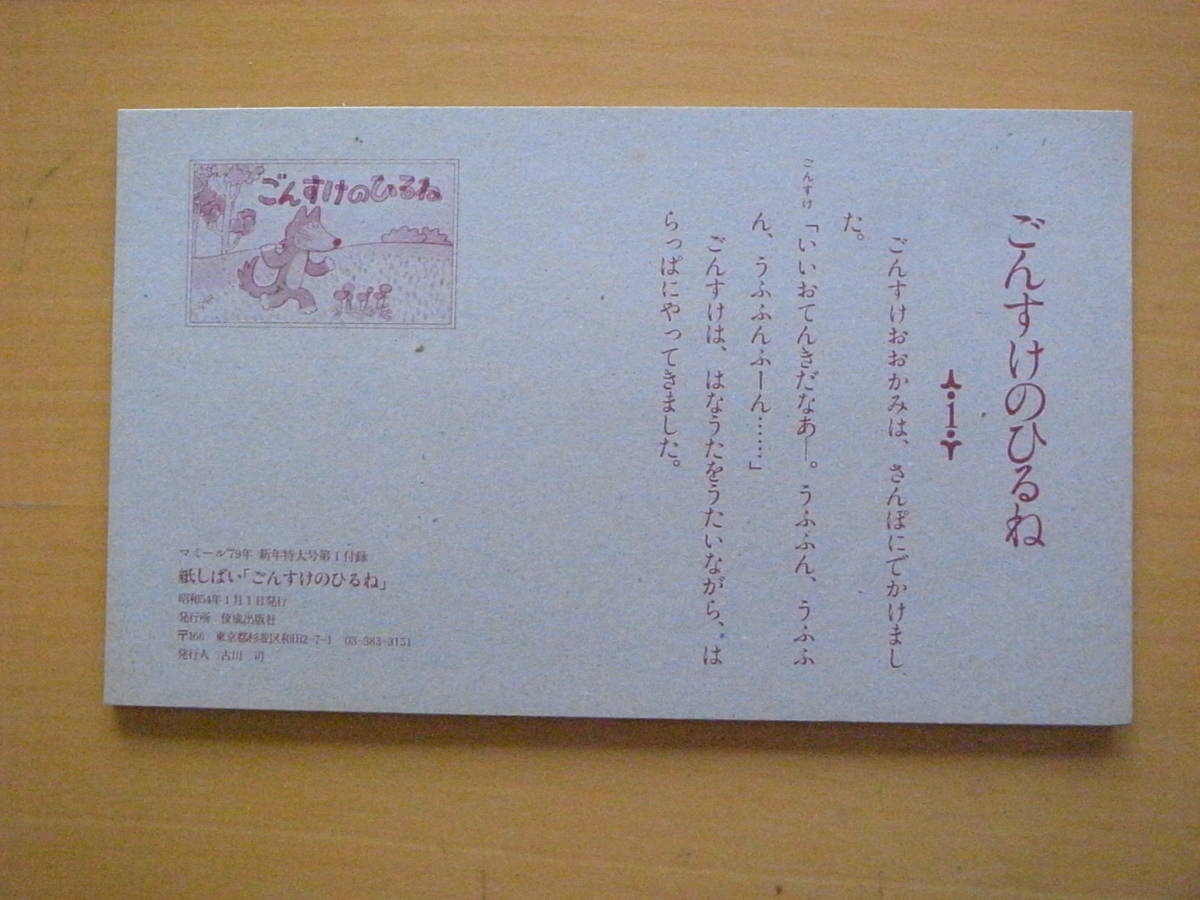 ごんすけのひるね
1
ごんすけおおかみは、さんぽにでかけまし
た。
ごんすけ
「いいおてんきだなあー。うふふん、うふふ
ん、うふふんふーん……」
ごんすけは、はなうたをうたいながら、は
らっぱにやってきました。
ごんすけのひるね
マミール'79年 新年特大号第1付録
紙しばい「ごんすけのひるね」
昭和54年1月1日発行
発行所 佼成出版社
〒166 東京都杉並区和田2-7-1 03-383-3151
発行人 古川 司